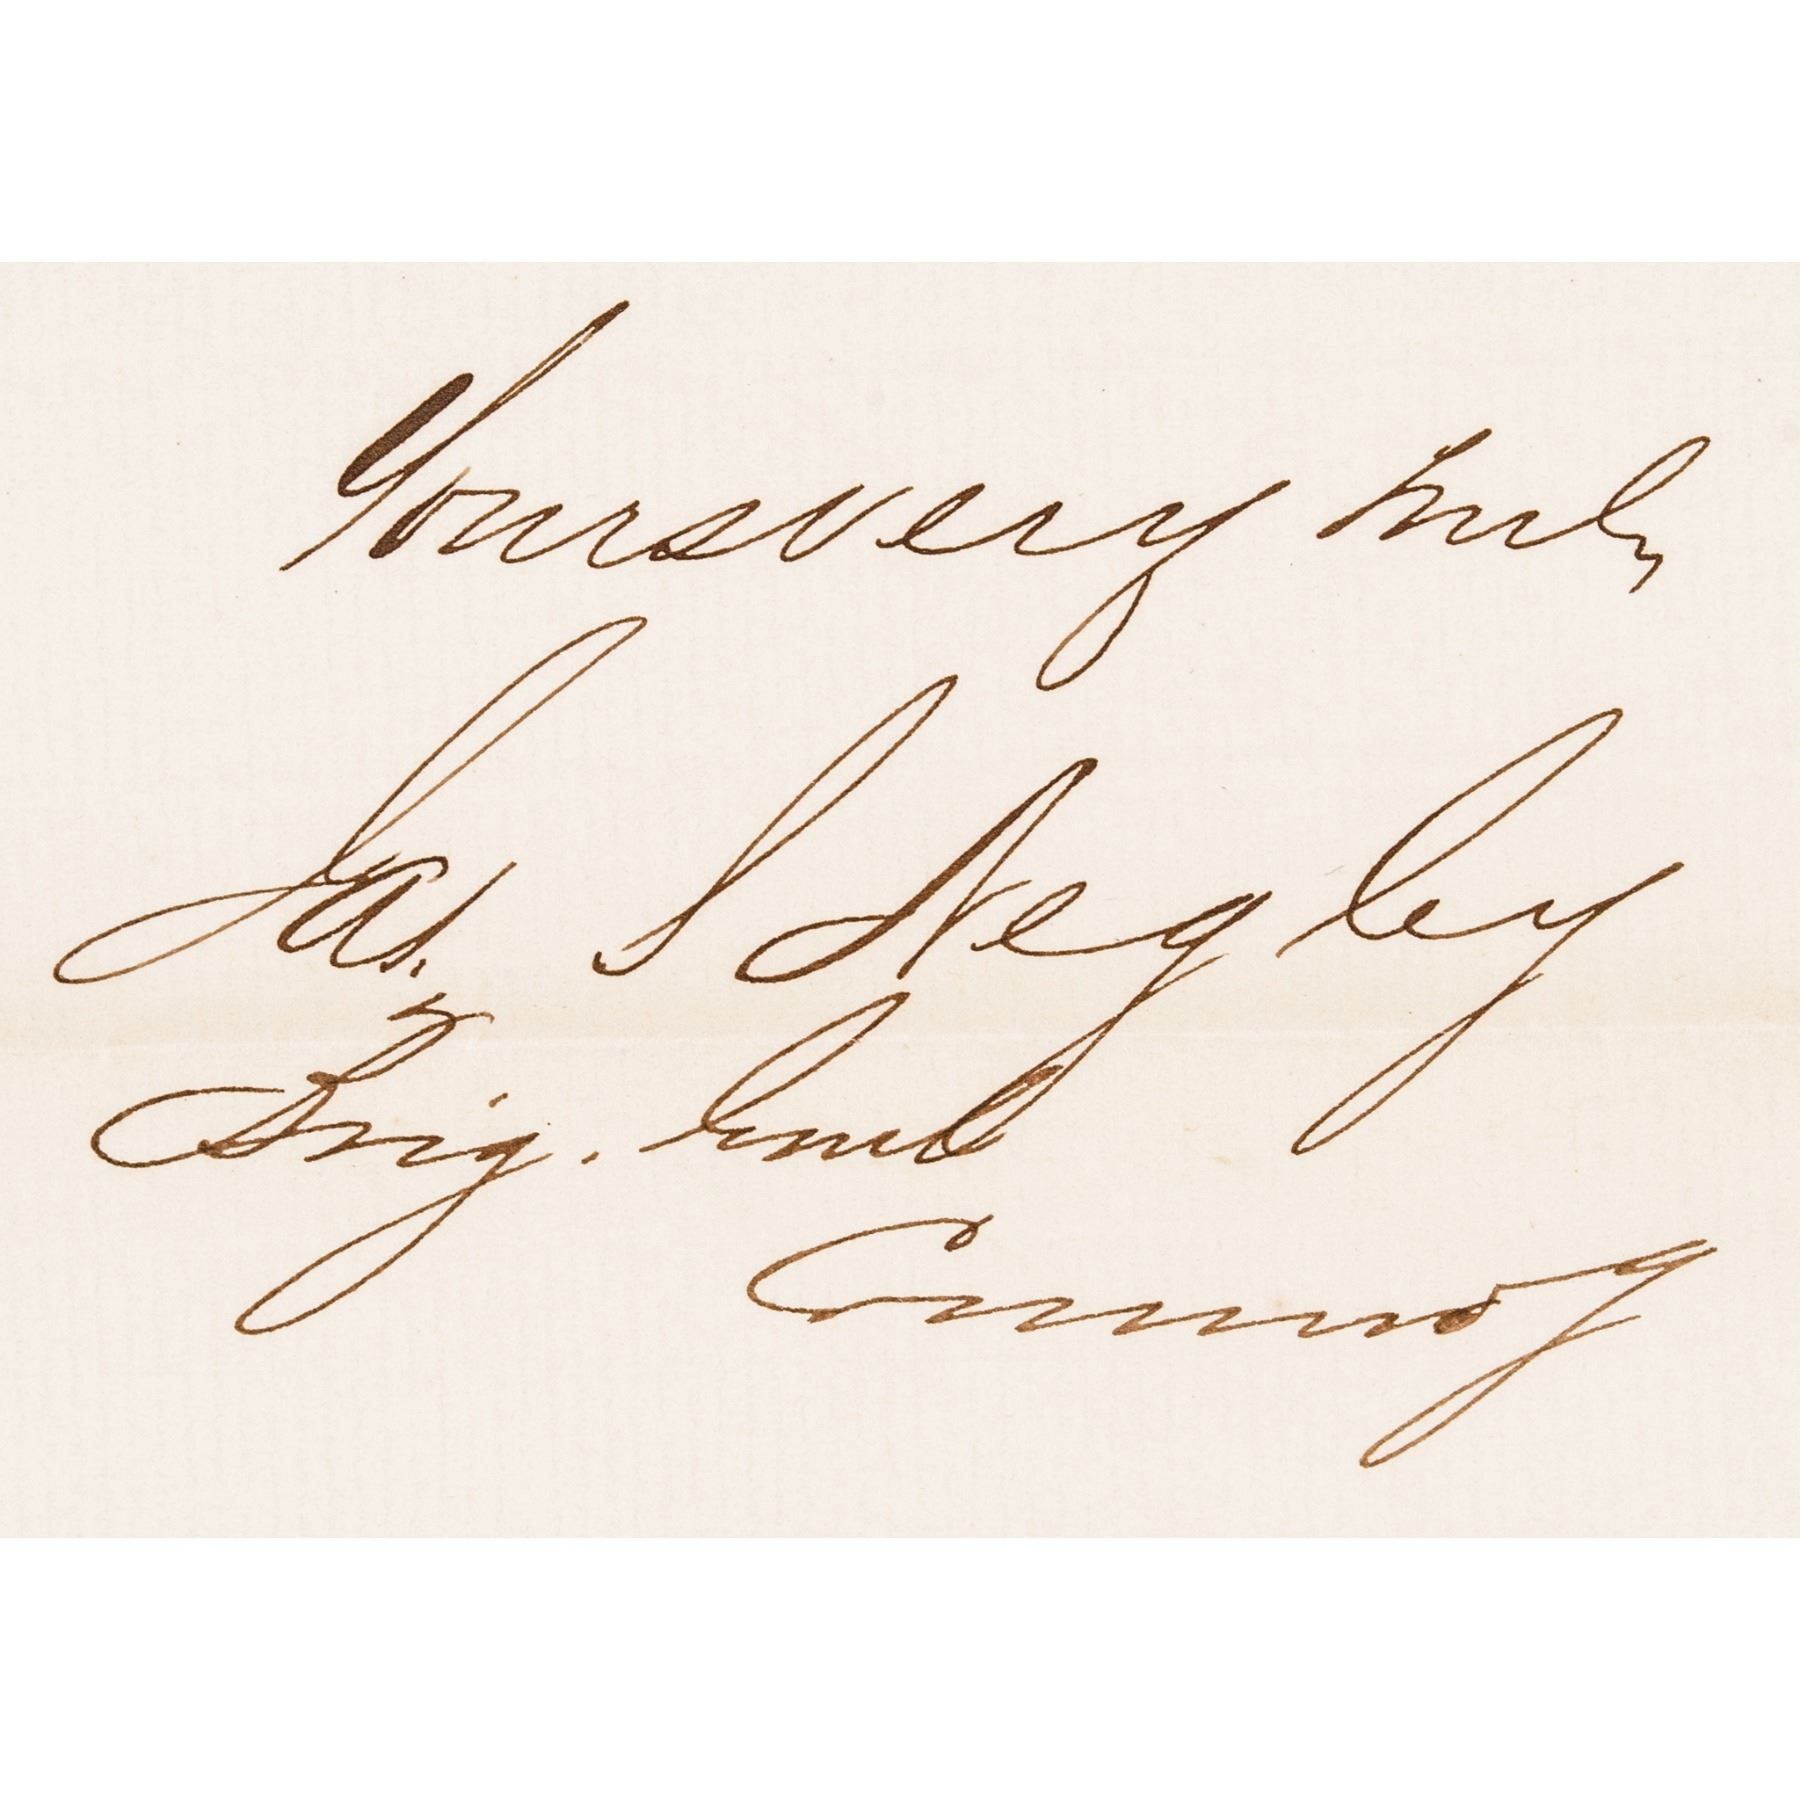 Yours very truly
Jas. S Negley
Brig. Genl
Commdg